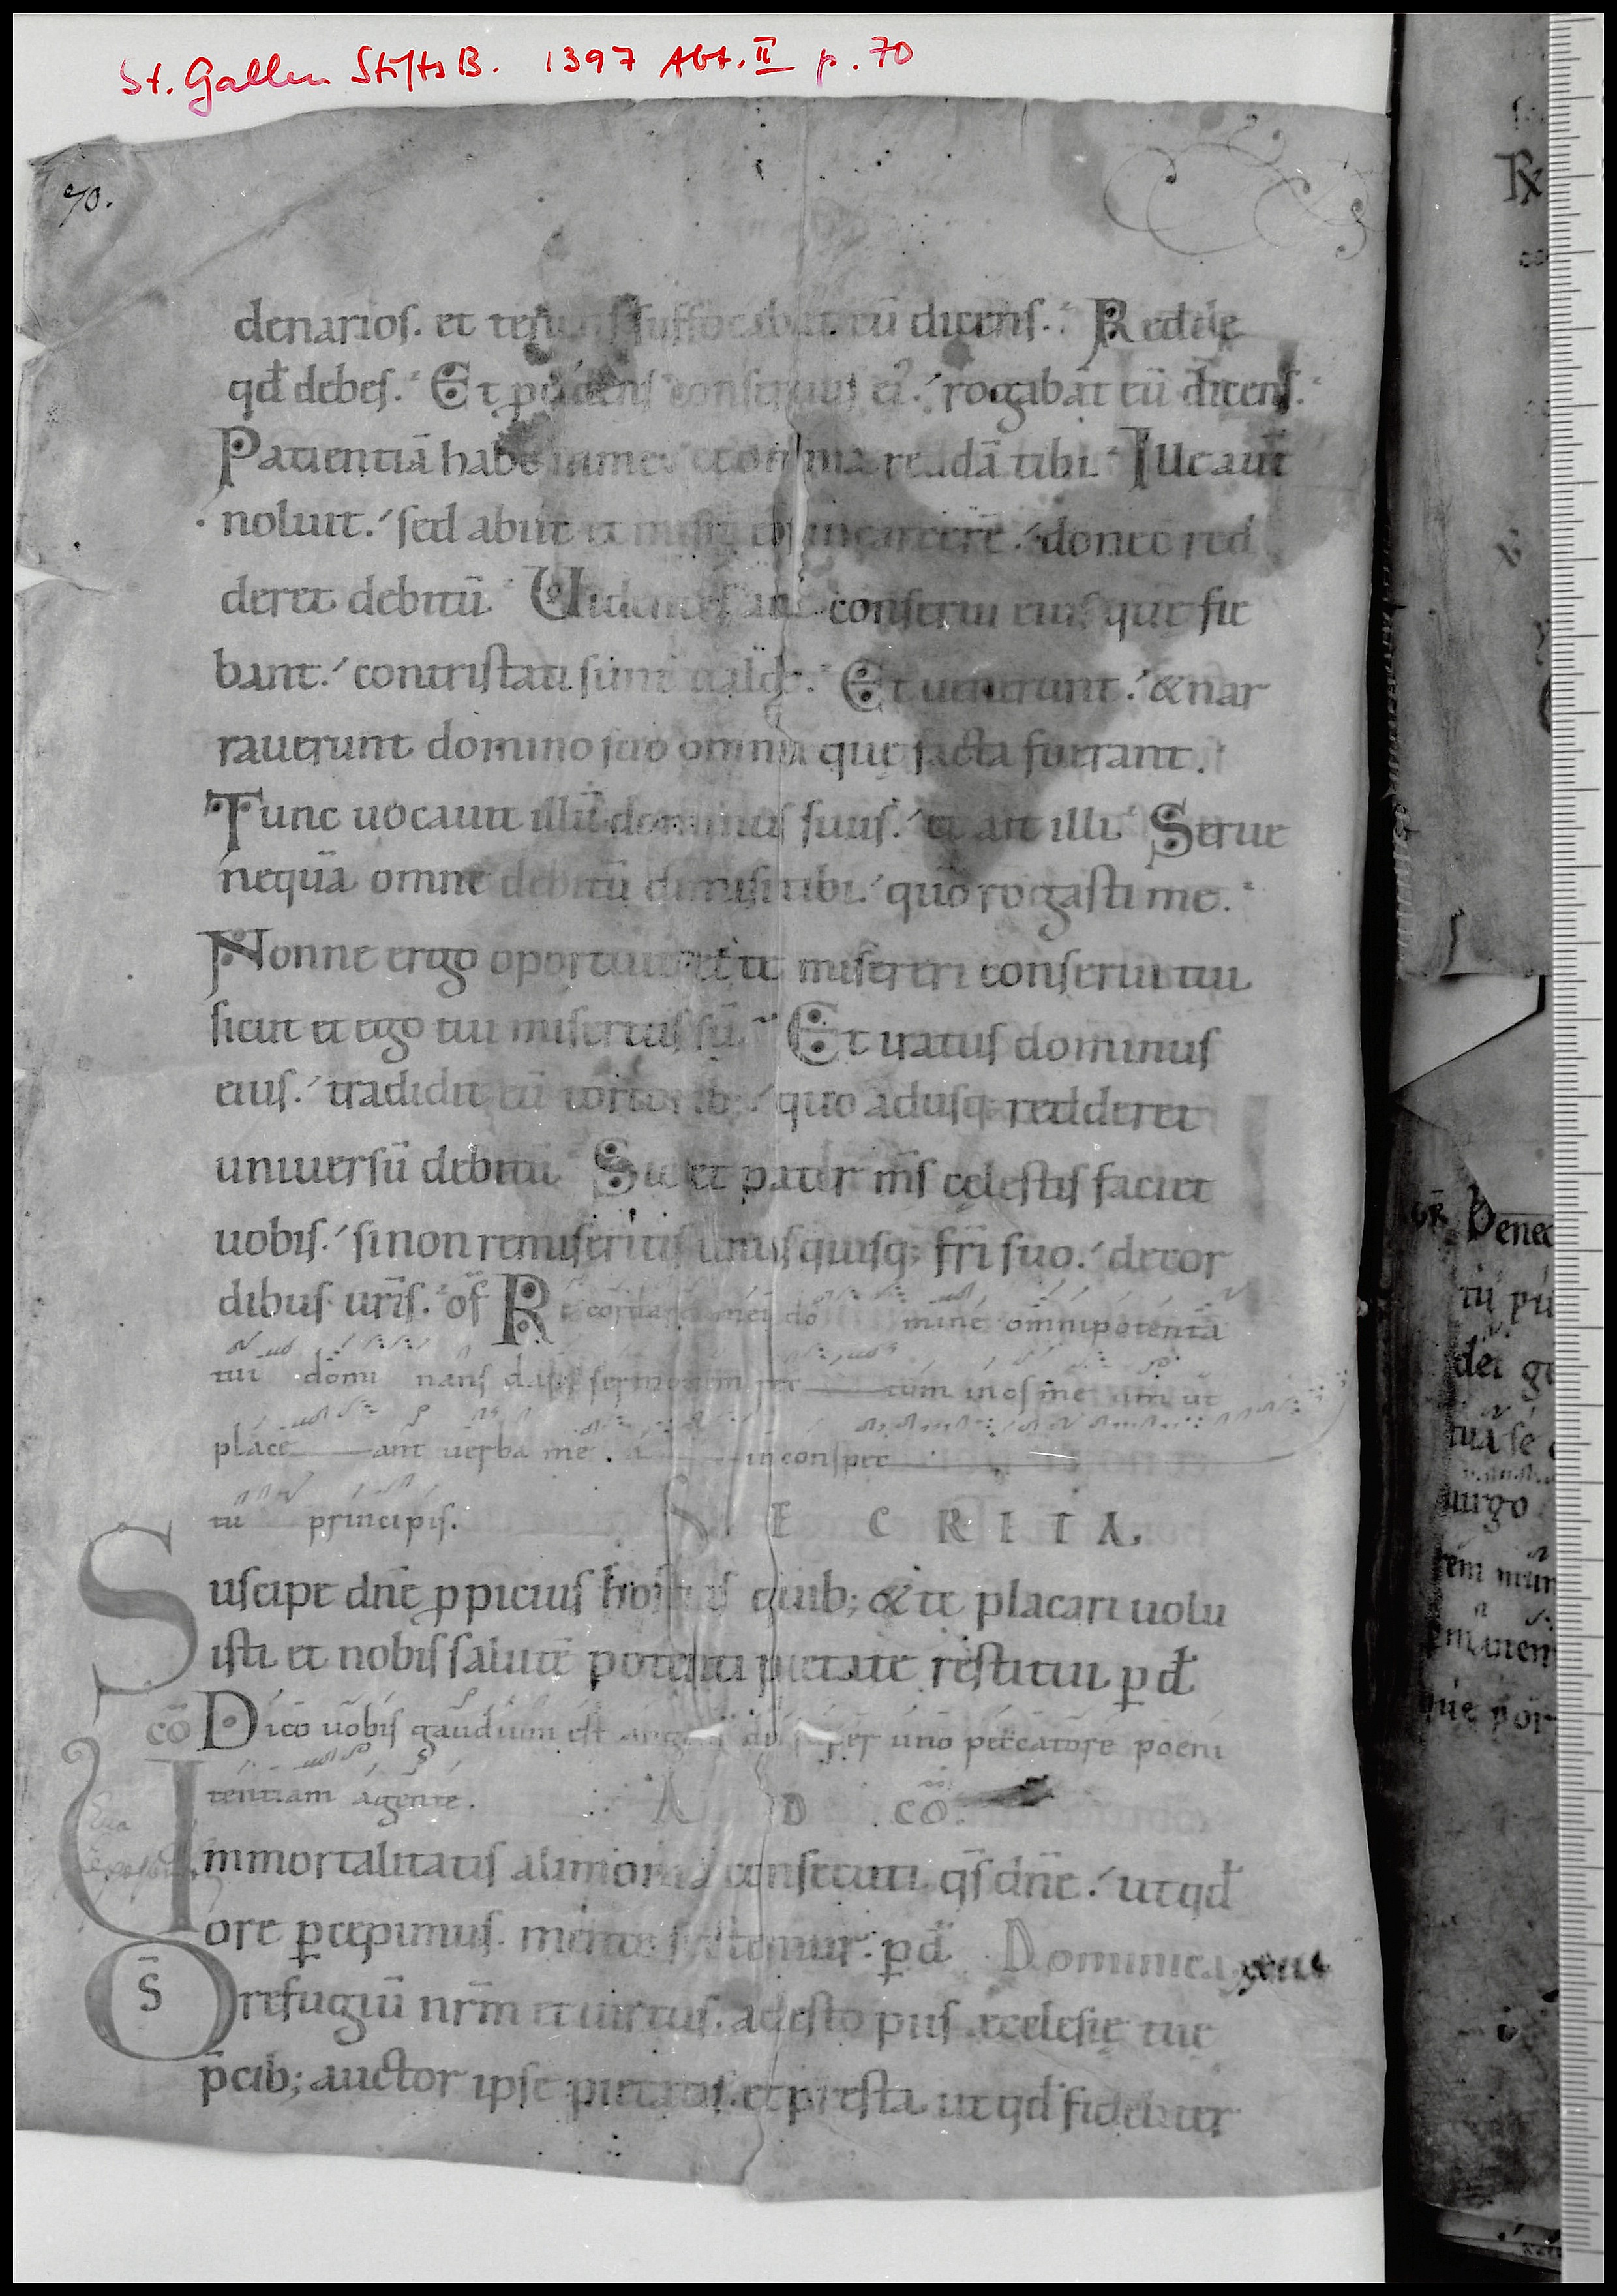 St. Gallen StiftsB. 1397 Abt. II p. 70
70.
denarios. et tenens suffocabat eū dicens. Redde
qđ debes. Et p̄cidens conseruus ei. rogabat eū dicens.
Patientiā habe in me. et omnia reddā tibi. Ille aūt
noluit. sed abiit et misit eū in carcerē. donec red
deret debitū. Uidentes aūt conserui eius que fie
bant. contristati sunt ualde. Et uenerunt. & nar
rauerunt domino suo omnia que facta fuerant.
Tunc uocauit illū dominus suus. et ait illi. Serue
nequā omne debitū dimisi tibi. quō rogasti me.
Nonne ergo oportuit et te misereri conserui tui
sicut et ego tui misertus sū. Et iratus dominus
eius. tradidit eū tortorib; quo adusq; redderet
uniuersū debitū. Sic et pater m̄s cęlestis faciet
uobis. si non remiseritis unusquisq; fr̄i suo. de cor
dibus ur̄is. of Recordare mei do mine omnipotenta
tui domi nans da sermonem rec tum in os me um ut
place ant uerba me a in conspec
tu principis. S E C R E T A.
Suscipe dn̄e ꝓpicius hostias quib; & te placari uolu
isti et nobis salutē potenti pietate restitui. ꝑ đ
cō Dico uobis gaudium est angelis dei super uno peccatore peni
tentiam agente. A D CŌ.
Immortalitatis alimonia consecuti qs̄ dn̄e. ut qđ
ore ꝑcepimus. mente sectemur. ꝑ đ. Dominica
D̄S refugiū nr̄m et uirtus. adesto piis ęcclesię tue
p̄cib; auctor ipse pietatis. et presta ut qđ fideliter